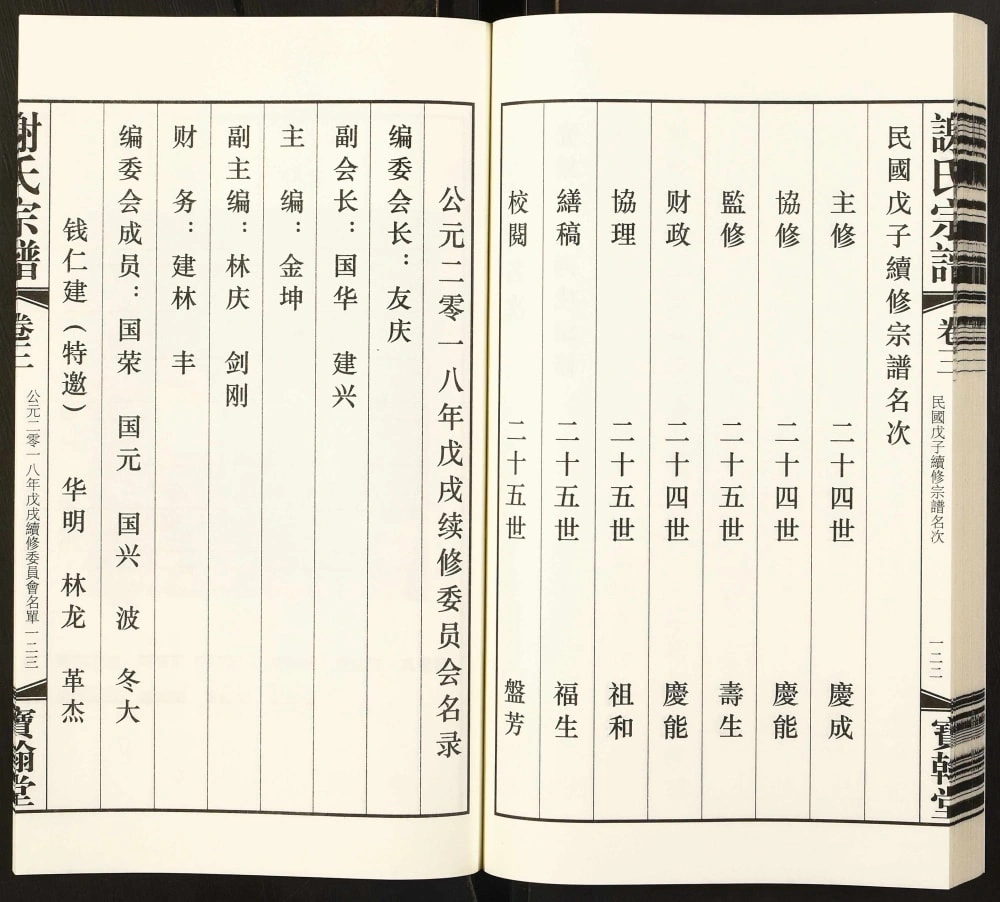 謝氏宗譜 卷三 民國戊子續修宗譜名次 一二二 寶翰堂
民國戊子續修宗譜名次
主修 二十四世 慶成
協修 二十四世 慶能
監修 二十五世 壽生
财政 二十四世 慶能
協理 二十五世 祖和
繕稿 二十五世 福生
校閱 二十五世 盤芳
公元二零一八年戊戌续修委员会名录
编委会长：友庆
副会长：国华 建兴
主 编：金坤
副主编：林庆 剑刚
财 务：建林 丰
编委会成员：国荣 国元 国兴 波 冬大
钱仁建（特邀） 华明 林龙 革杰
謝氏宗譜 卷三 公元二零一八年戊戌續修委員會名單 一二三 寶翰堂